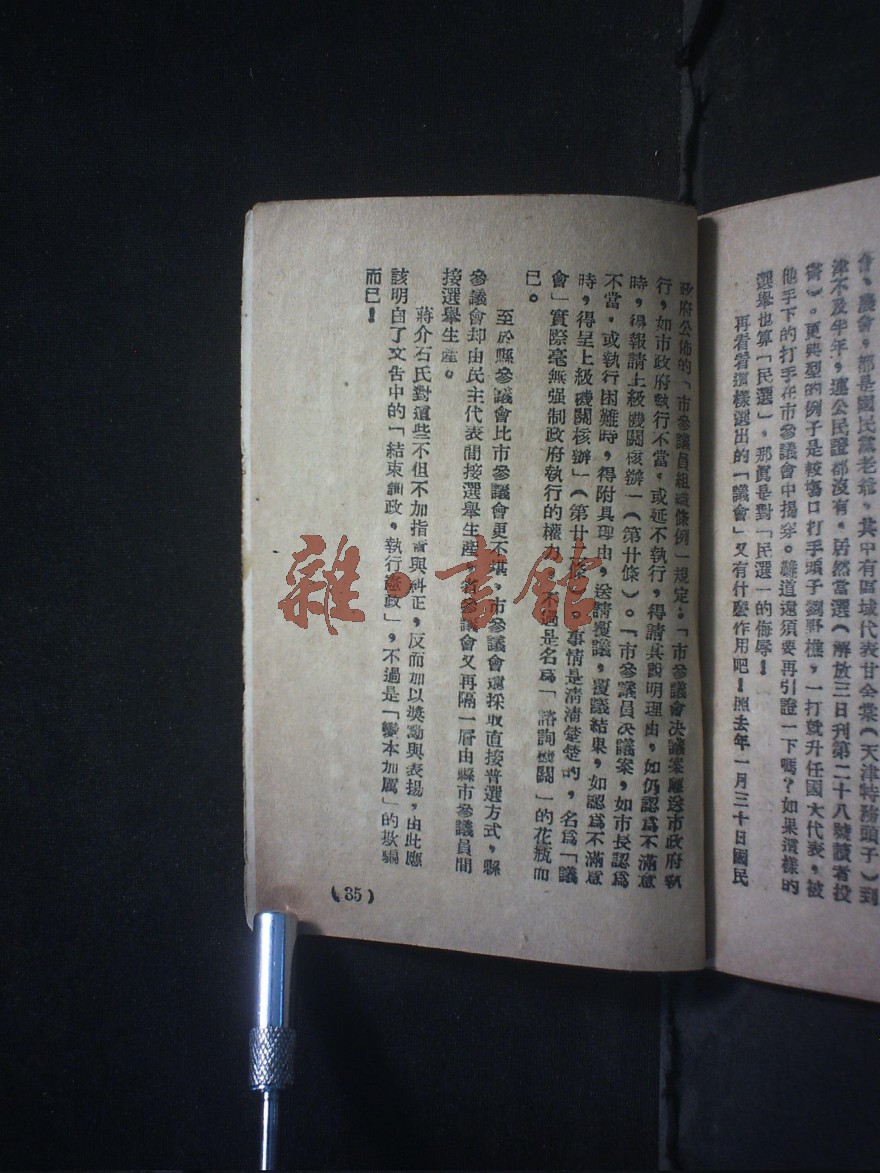 會，農會，都是國民黨老爺，其中有區域代表甘金棠（天津特務頭子）到
津不及半年，連公民證都沒有，居然當選（解放三日刊第二十八號讀者投
書）。更典型的例子是較塲口打手頭子劉野樵，一打就升任國大代表，被
他手下的打手在市參議會中揭穿。難道還須要再引證一下嗎？如果這樣的
選舉也算「民選」，那眞是對「民選」的侮辱！
再看看這樣選出的「議會」又有什麽作用吧！照去年一月三十日國民
政府公佈的「市參議員組織條例」規定：「市參議會決議案雁送市政府執
行，如市政府執行不當，或延不執行，得請其說明理由，如仍認爲不滿意
時，得報請上級機關核辦」（第廿條）。「市參議員決議案，如市長認爲
不當，或執行困難時，得附具理由，送請覆議，覆議結果，如認爲不滿意
時，得呈上級機關核辦」（第廿條）。事情是淸淸楚楚的，名爲「議
會」實際毫無强制政府執行的權力，不過是名爲「諮詢機關」的花瓶而
已。
至於縣參議會比市參議會更不堪，市參議會還採取直接普選方式，縣
參議會却由民主代表間接選舉生產，省參議會又再隔一層由縣市參議員間
接選舉生產。
蔣介石氏對這些不但不加指責與糾正，反而加以奬勵與表揚，由此應
該明白了文告中的「結束訓政，執行憲政」，不過是「變本加厲」的欺騙
而已！
（35）
雜·書館